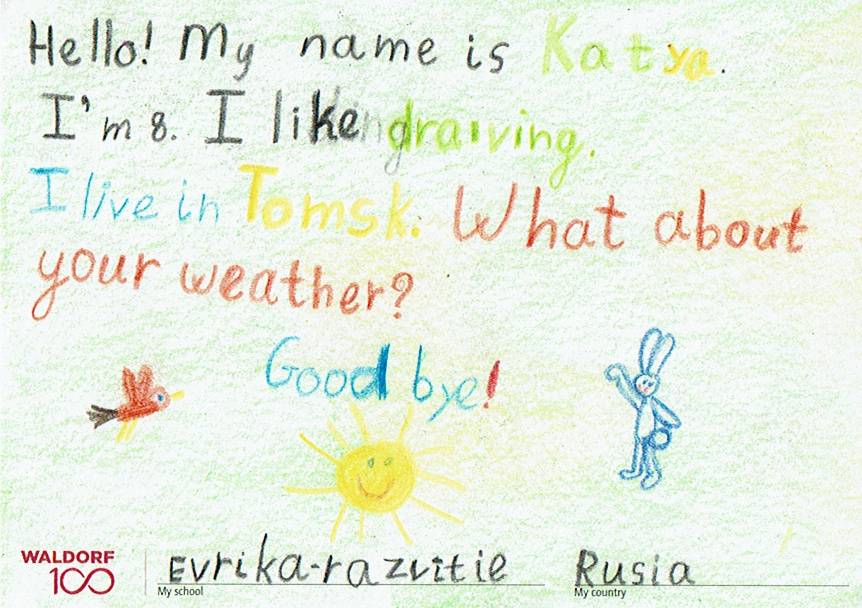 Hello! My name is Katya.
I'm 8. I like draiving.
I live in Tomsk. What about
your weather?
Good bye!
WALDORF
100
Evrika-razvitie
My school
Rusia
My country